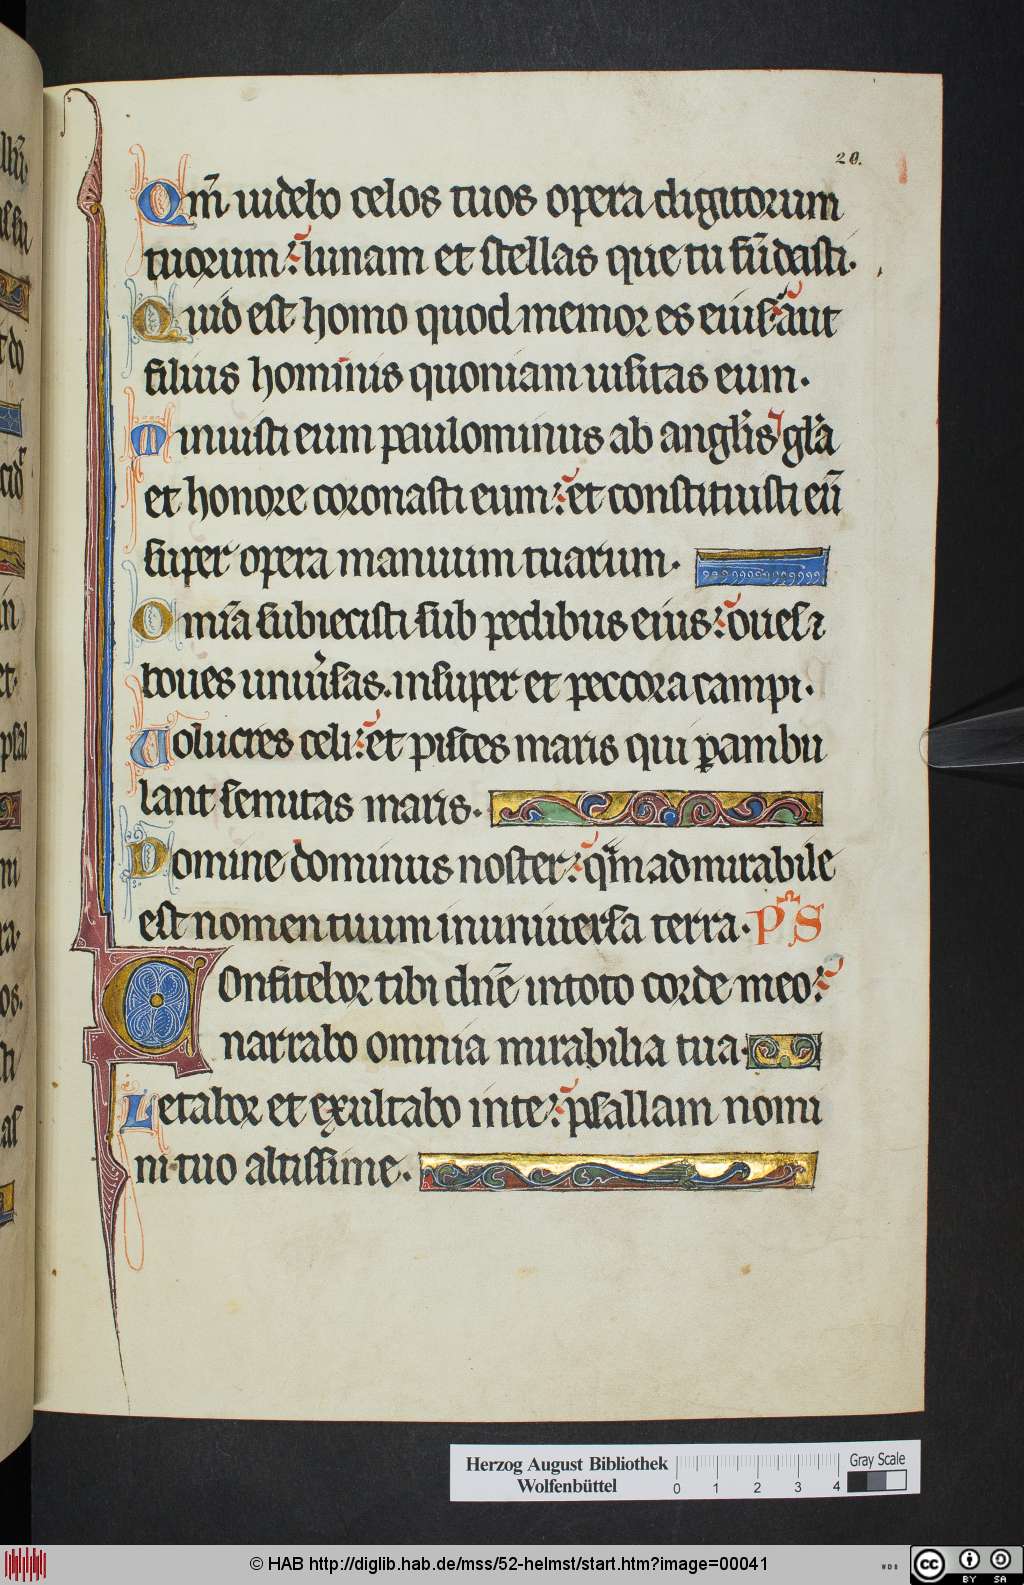 20.
Qm̄ uidebo celos tuos opera digitorum
tuorum: lunam et stellas que tu fūdasti.
Quid est homo quod memor es eius: aut
filius hominis quoniam uisitas eum.
Minuisti eum paulominus ab anglis gl̄a
et honore coronasti eum: et constituisti eū
super opera manuum tuarum.
Om̄ia subiecisti sub pedibus eius: oues ⁊
boues uniu̾sas. insuper et peccora campi.
Uolucres celi: et pisces maris qui ꝑambu
lant semitas maris.
Domine dominus noster: qm̄ admirabile
est nomen tuum in uniuersa terra. PS
Confitebor tibi dn̄e in toto corde meo:
narrabo omnia mirabilia tua.
Letabor et exultabo in te: psallam nomi
ni tuo altissime.
Herzog August Bibliothek
Wolfenbüttel
0 1 2 3 4
Gray Scale
© HAB http://diglib.hab.de/mss/52-helmst/start.htm?image=00041
WDB
cc BY SA